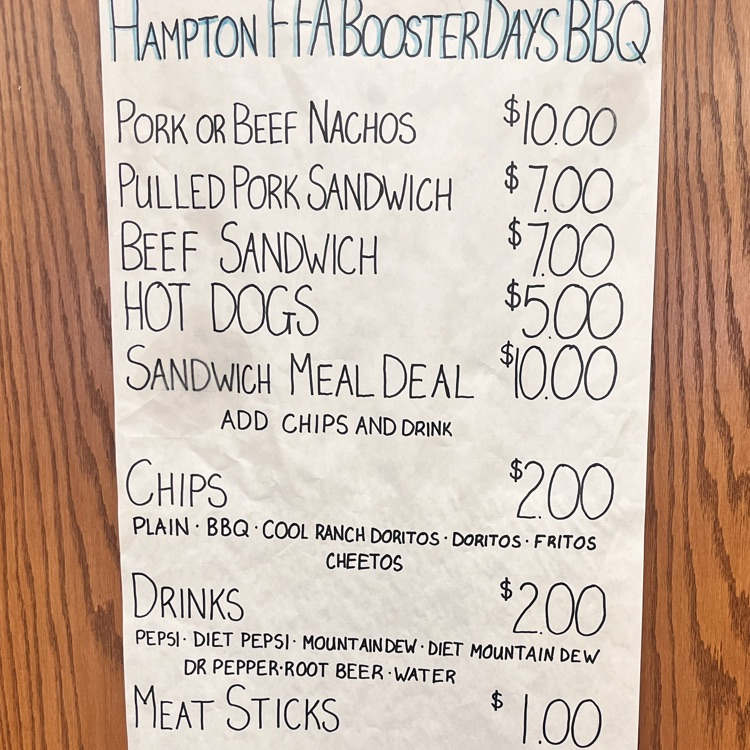 HAMPTON FFA BOOSTER DAYS BBQ
PORK OR BEEF NACHOS $10.00
PULLED PORK SANDWICH $7.00
BEEF SANDWICH $7.00
HOT DOGS $5.00
SANDWICH MEAL DEAL $10.00
ADD CHIPS AND DRINK
CHIPS $2.00
PLAIN · BBQ · COOL RANCH DORITOS · DORITOS · FRITOS
CHEETOS
DRINKS $2.00
PEPSI · DIET PEPSI · MOUNTAIN DEW · DIET MOUNTAIN DEW
DR PEPPER · ROOT BEER · WATER
MEAT STICKS $1.00